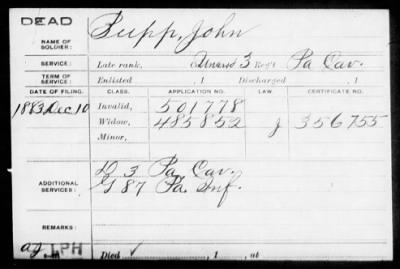 DEAD
NAME OF SOLDIER: Zupp, John
SERVICE: Late rank, Unassd 3 Reg't Pa Cav.
TERM OF SERVICE: Enlisted , 1 Discharged , 1
DATE OF FILING. CLASS. APPLICATION NO. LAW. CERTIFICATE NO.
1883, Dec 10 Invalid, 501778
Widow, 485852 J 356755
Minor,
ADDITIONAL SERVICES: D 3 Pa Cav.
G 87 Pa. Inf.
REMARKS:
LPH Died , 1 , at